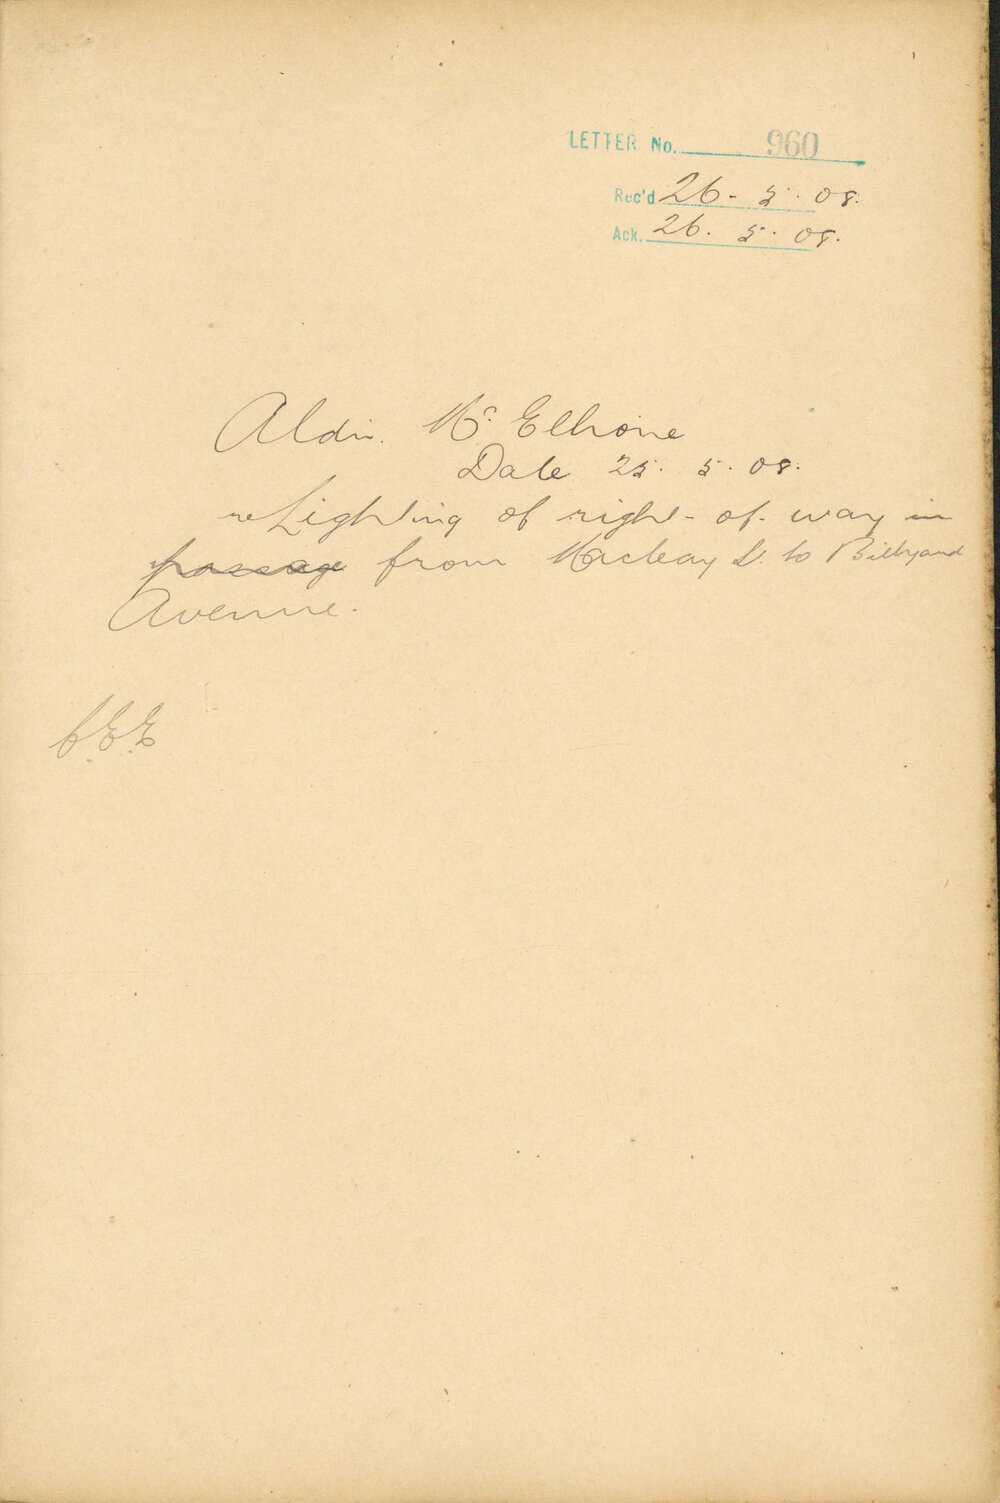 LETTER No. 960
Rec'd 26 - 5 . 08.
Ack. 26. 5. 08.
Aldn. Mc Elhone
Date 25. 5. 08.
re Lighting of right - of - way in
passage from Macleay St. to Billyard
Avenue.
C.E.E